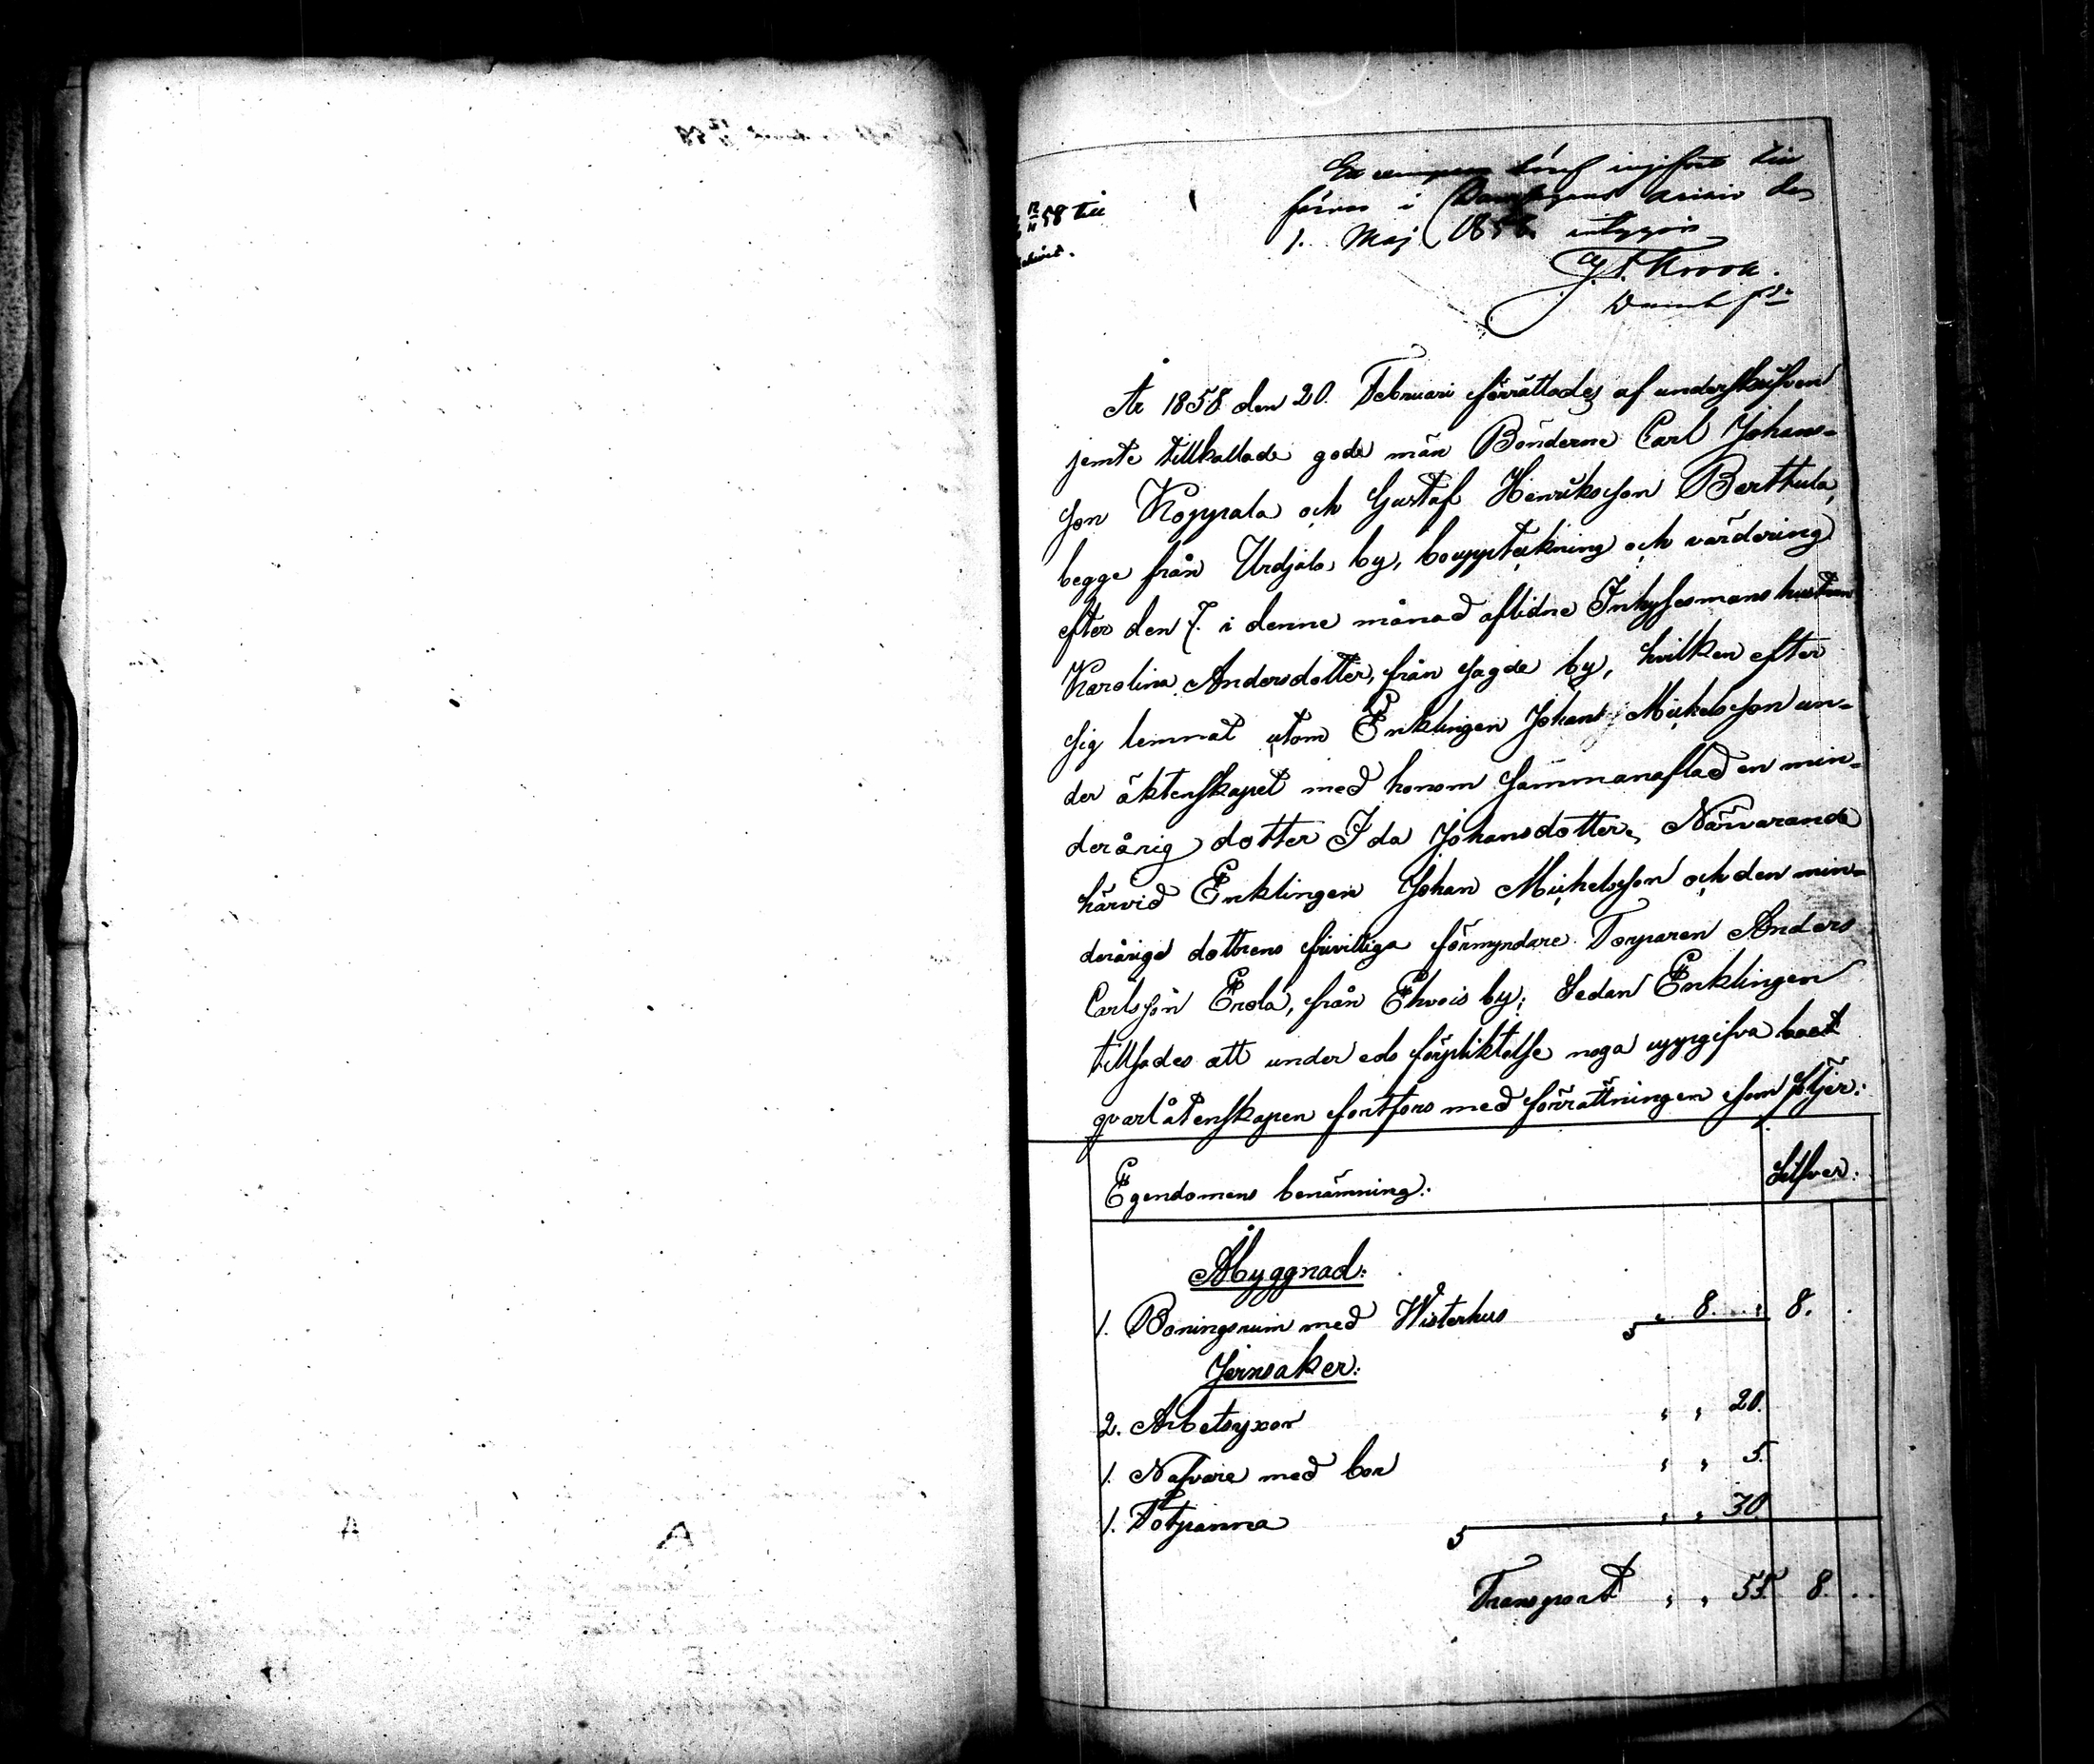 58 till
Ex. härof ingifvet till
förvar i Domhafvande Arkiv den
1. Maj 1858. intygar
Domh.
År 1858 den 20. Februari förrättades af underskrifven
jemte tillkallade gode män Bönderne Carl Johans-
son Koppala och Gustaf Henriksson Berttula,
begge från Urdjala by, bouppteckning och värdering
efter den 7. i denne månad aflidne Inhysesmans hustrun
Karolina Andersdotter, från sagde by, hvilken efter
sig lemnat utom Enklingen Johan Mickelsson un-
der äktenskapet med honom sammanaflad en min-
derårig dotter Ida Johansdotter, Närvarande
härvid Enklingen Johan Michelsson och den min-
deråriga dottrens frivilliga förmyndare Torparen Anders
Carlsson Erola, från Ehvois by; Sedan Enklingen
tillsades att under eds förpliktelse noga uppgifva boet
qvarlåtenskapen fortfors med förrättningen som följer:
Egendomens benämning: Silfver:
Åbyggnad:
1. Boningsrum med Wisterhus 8. 8.
Jernsaker:
2. Arbetsyxor " " 20.
1. Nafvare med bor " " 5.
1. Fotpanna " " 30
Transport " " 55. 8.